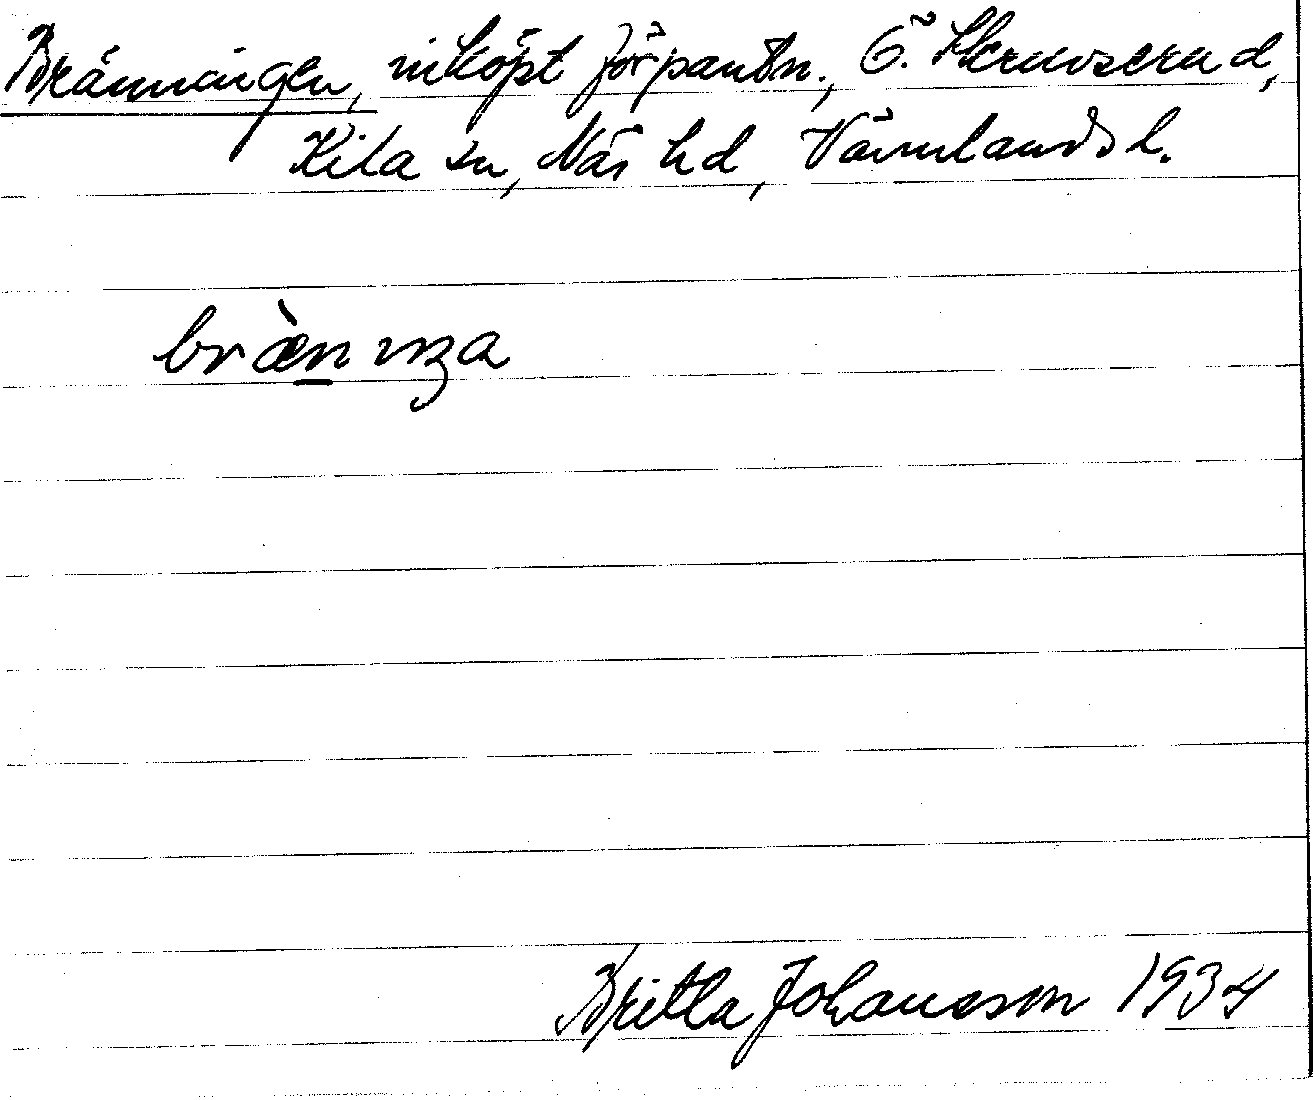 Bränningen, inköpt förpantn., Ö. Skruvserud,
Kila sn, Näs hd, Värmlands l.
brænnıŋa
Britta Johansson 1934